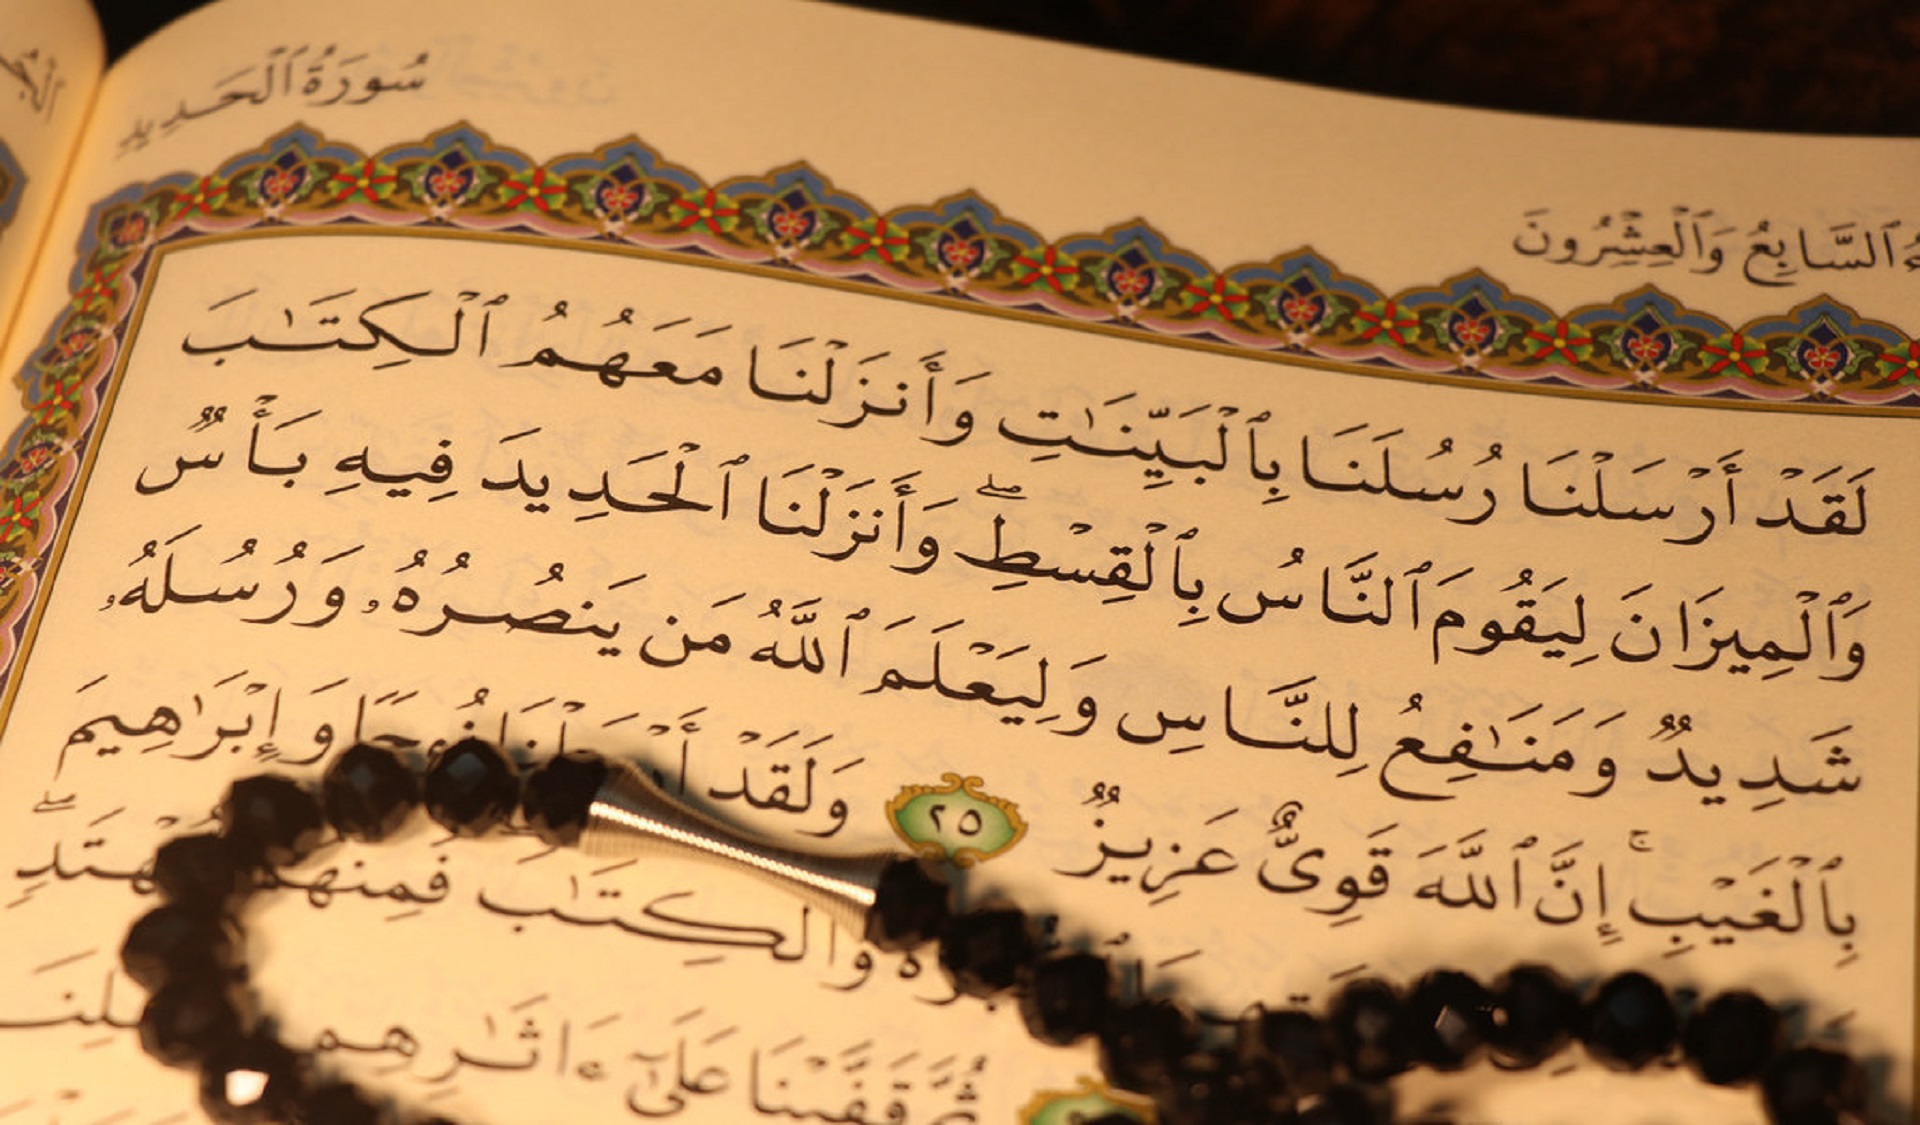 سُورَةُ ٱلْحَدِيدِ
ٱلسَّابِعُ وَٱلْعِشْرُونَ
لَقَدْ أَرْسَلْنَا رُسُلَنَا بِٱلْبَيِّنَٰتِ وَأَنزَلْنَا مَعَهُمُ ٱلْكِتَٰبَ
وَٱلْمِيزَانَ لِيَقُومَ ٱلنَّاسُ بِٱلْقِسْطِ ۖ وَأَنزَلْنَا ٱلْحَدِيدَ فِيهِ بَأْسٌ
شَدِيدٌ وَمَنَٰفِعُ لِلنَّاسِ وَلِيَعْلَمَ ٱللَّهُ مَن يَنصُرُهُۥ وَرُسُلَهُۥ
بِٱلْغَيْبِ ۚ إِنَّ ٱللَّهَ قَوِىٌّ عَزِيزٌ ٢٥ وَلَقَدْ نُوحًا وَإِبْرَٰهِيمَ
وَٱلْكِتَٰبَ فَمِنْهُم
ثُمَّ قَفَّيْنَا عَلَىٰٓ ءَاثَٰرِهِم